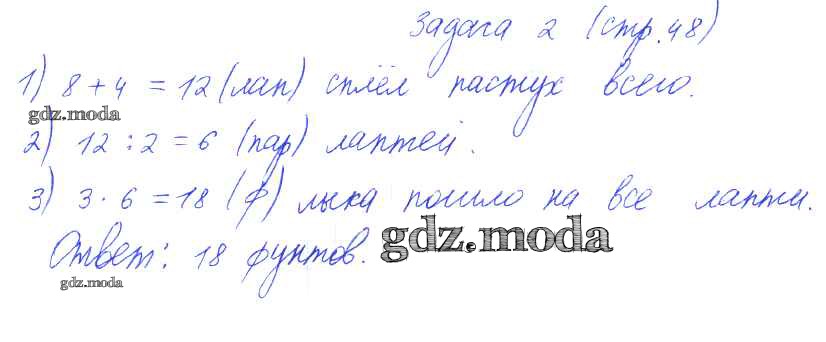 Задача 2 (стр. 48)
1) 8 + 4 = 12 (лап) сплёл пастух всего.
gdz.moda
2) 12 : 2 = 6 (пар) лаптей.
3) 3 · 6 = 18 (ф) лыка пошло на все лапти.
Ответ: 18 фунтов.
gdz.moda
gdz.moda